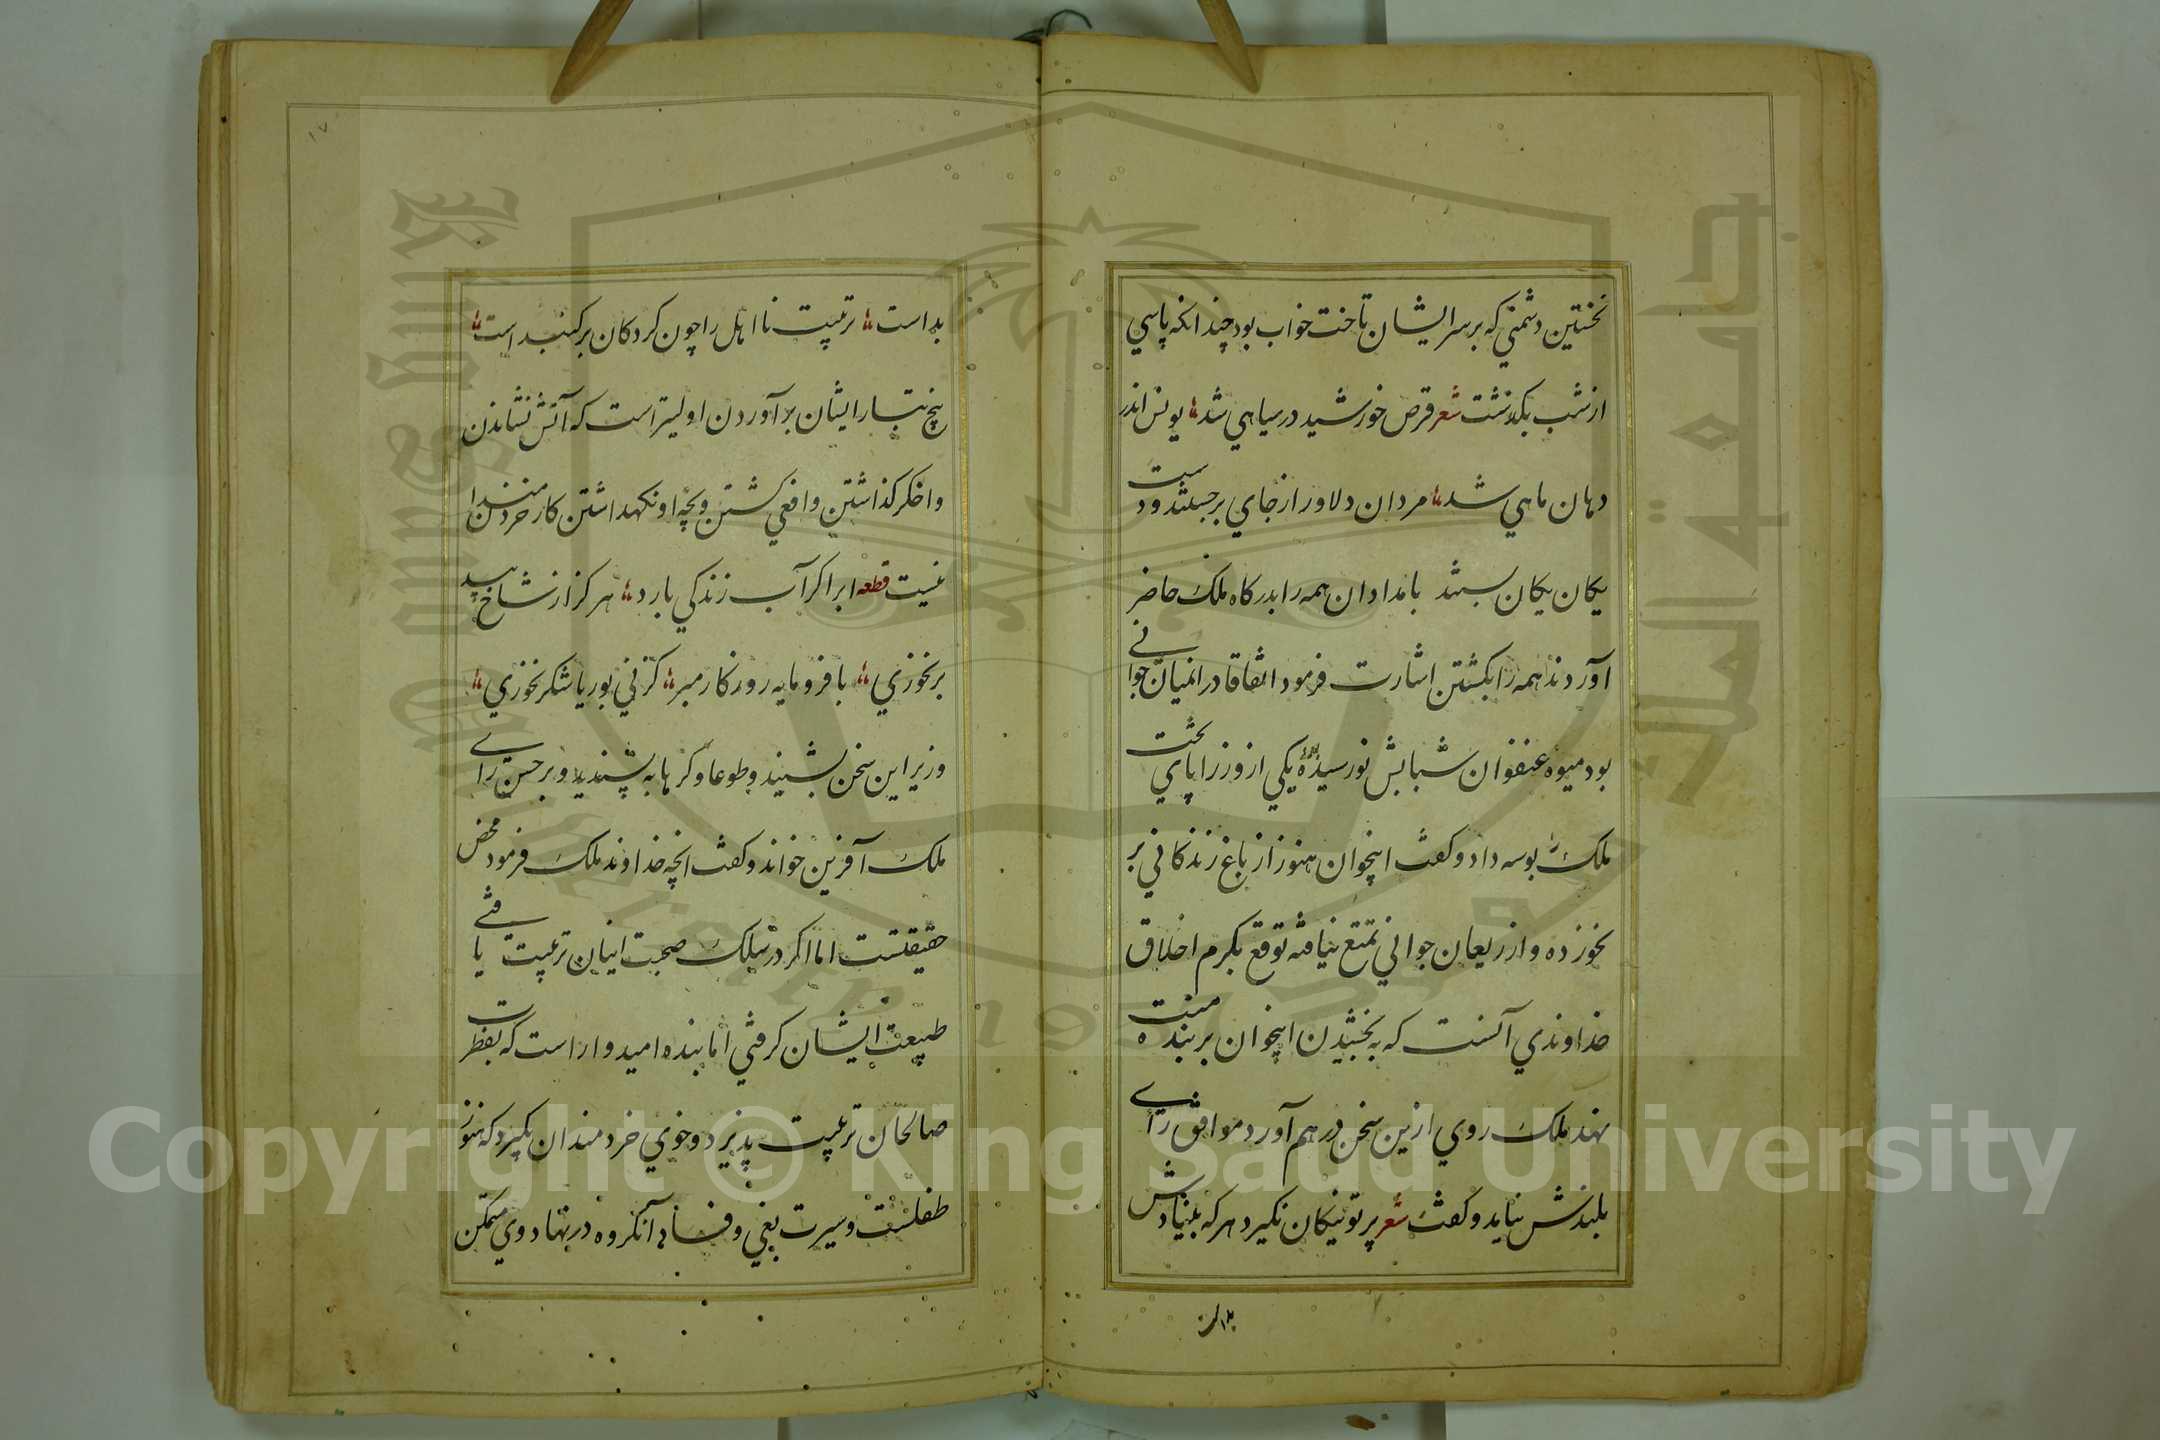 نخستین دشمني که بر سر ایشان تاخت خواب بود چندانکه پاسي
از شب بکذشت شعر قرص خورشید در سیاهي شد یونس اندر
دهان ماهي شد مردان دلاور از جاي برجستند و دست
یکان یکان بستند بامدادان همه را بدرکاه ملک حاضر
آوردند همه را بکشتن اشارت فرمود اتفاقا در انمیان جواني
بود میوه عنفوان شبابش نورسیده یکي از وزرا پاي تخت
ملک بوسه داد و کفت اینجوان هنوز از باغ زندکاني بر
نخورده و از ریعان جواني تمتع نیافته توقع بکرم اخلاق
خداوندي آنست که به بخشیدن اینجوان بر بنده منت
نهند ملک روي ازین سخن درهم آورد موافق راے
بلندش نیامد و کفت شعر پرتو نیکان نکیرد هر که بنیادش
بداست
بداست تربیت نا اهل را چون کردکان بر کنبد است
بیخ تبار ایشان برآوردن اولیتر است که آتش نشاندن
و اخکر کذاشتن و افعي کشتن و بچه او نکهداشتن کار خردمندان
نیست قطعه ابر اکر آب زندکي بارد هرکز از شاخ بید
بر نخوري با فرومایه روزکار مبر کز ني بوریا شکر نخوري
وزیر این سخن بشنید و طوعا و کرها به پسندید و بر حسن راے
ملک آفرین خواند و کفت انچه خداوند ملک فرمود محض
حقیقتست اما اکر در سلک صحبت اینان تربیت یافتے
طبیعت ایشان کرفتي اما بنده امیدوار است که بفطرت
صالحان تربیت پذیرد و خوي خردمندان بکیرد که هنوز
طفلست و سیرت بغي و فساد آنکروه در نهاد وي متمکن
١٧
جامعة الملك سعود
King Saud University
Copyright © King Saud University